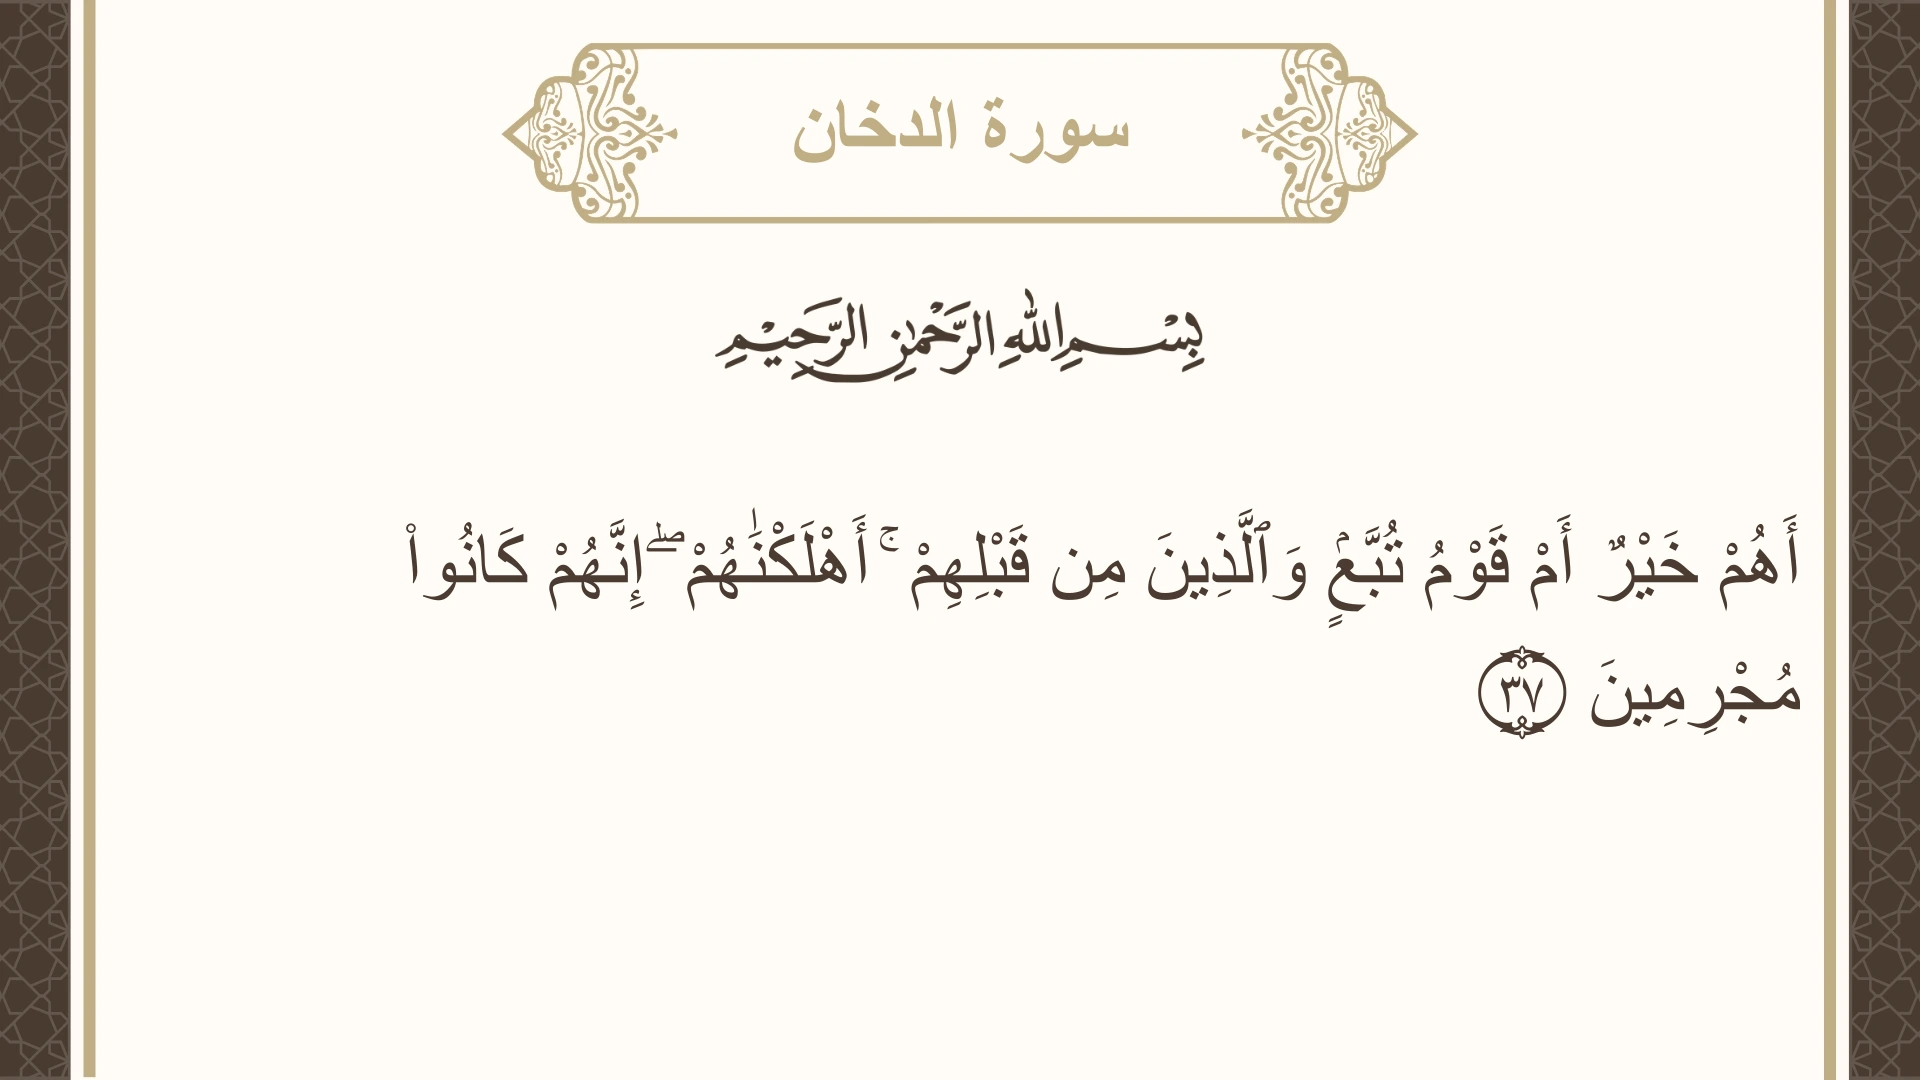 سورة الدخان
بِسْمِ اللهِ الرَّحْمٰنِ الرَّحِيْمِ
أَهُمْ خَيْرٌ أَمْ قَوْمُ تُبَّعٍۢ وَٱلَّذِينَ مِن قَبْلِهِمْ ۚ أَهْلَكْنَـٰهُمْ ۖ إِنَّهُمْ كَانُوا۟
مُجْرِمِينَ ٣٧